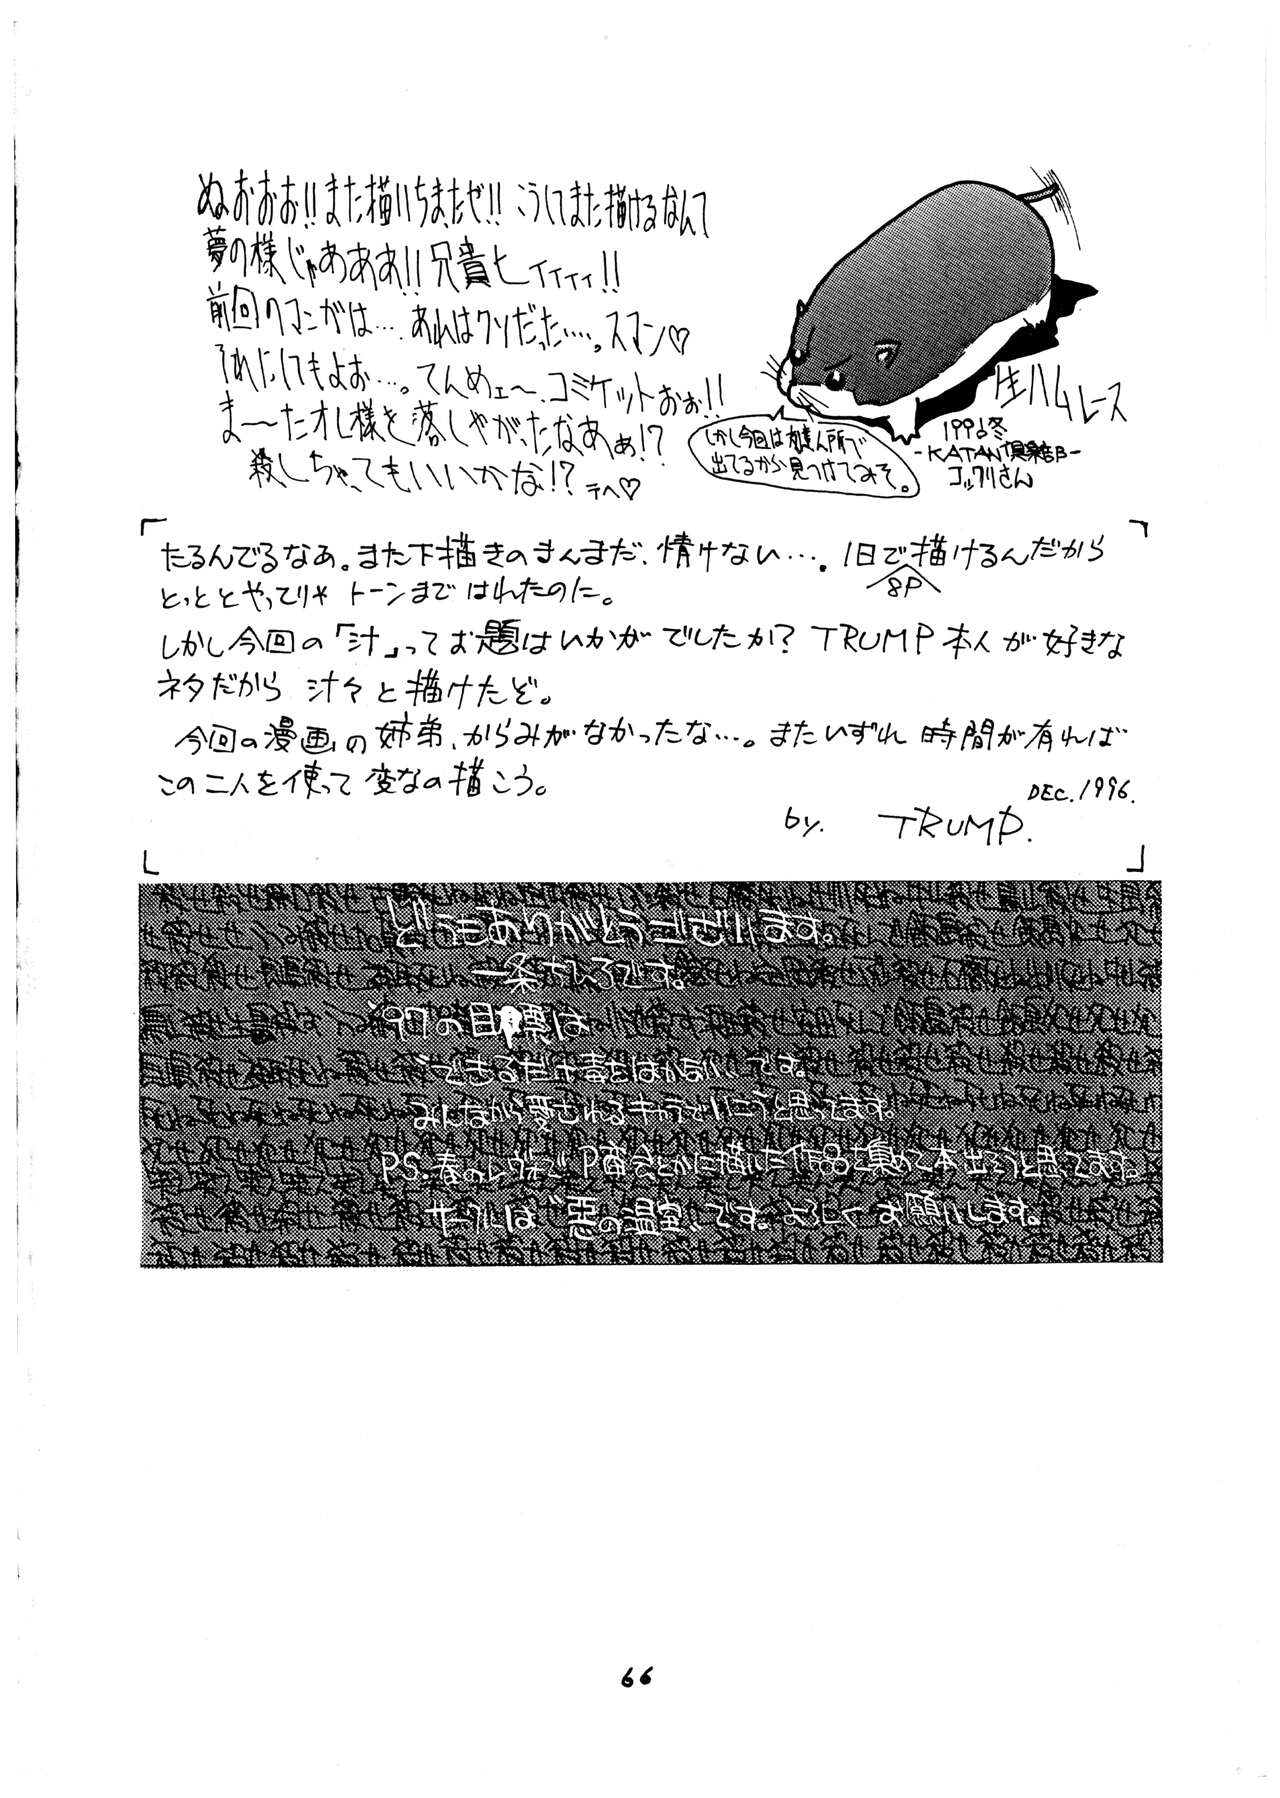 ぬおおお!!また描いちまたぜ!! こうしてまた描けるなんて
夢の様じゃあああ!!兄貴ヒィィィィ!!
前回のマンガは… あれはクソだった……。スマン♡
それにしてもよお…。てんめェ〜、コミケットおぉ!!
ま〜たオレ様を落しやがったなあぁ!?
殺しちゃってもいいかな!?テヘ♡
しかし今回は
出てるから見つけてみそ。
生ハムレース
1996冬
-KATAN倶楽部-
コックリさん
たるんでるなあ。また下描きのまんまだ、情けない…. 1日で描けるんだから
8P
とっととやってりゃ トーンまで はれたのに。
しかし今回の「汁」ってお題はいかがでしたか? TRUMP本人が好きな
ネタだから 汁々と描けたぞ。
今回の漫画の姉弟、からみがなかったな…。またいずれ 時間が有れば
この二人を使って変なの描こう。
DEC.1996.
by. TRUMP.
どうもありがとうございます。
一条ちひろです。
'97の目標は
できるだけ毒をはかないです。
みんなから愛されるキャラでいこうと思ってます。
PS.春のレヴォで とかに描いた作品集めて本出そうと思てます。
サークルは"悪の温室"です。よろしくお願いします。
66